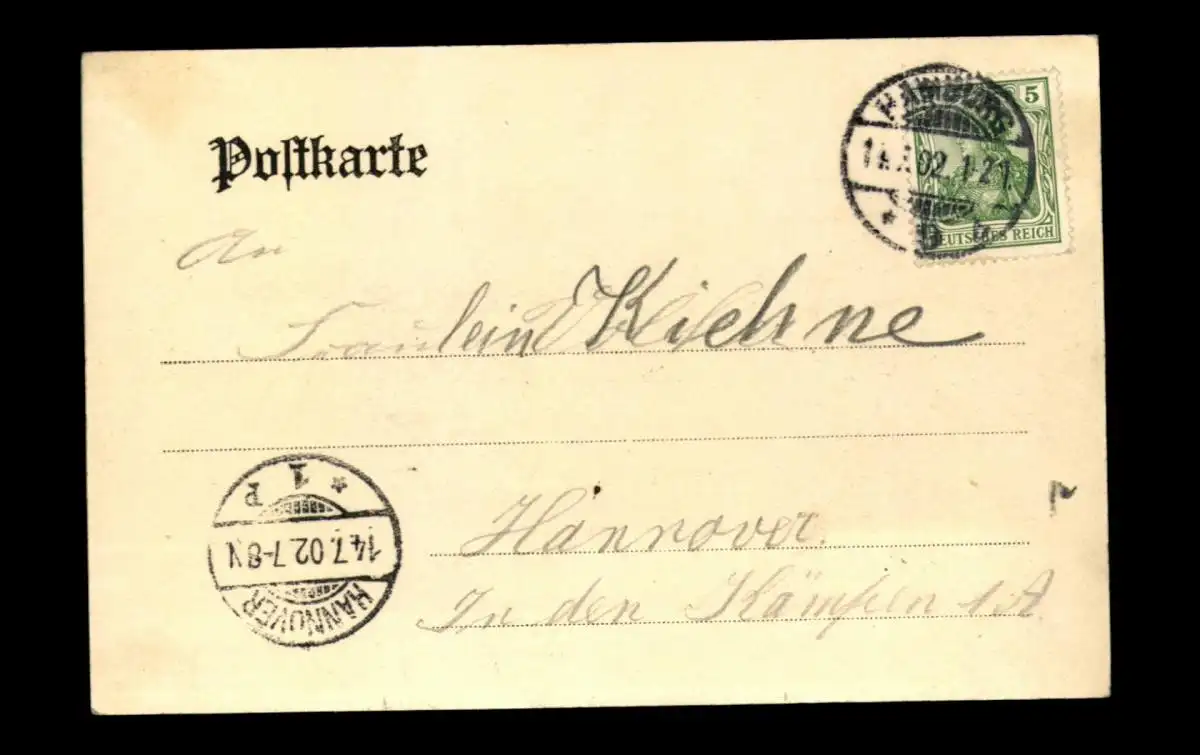 Postkarte
HAMBURG
02. 1-2
5
DEUTSCHES REICH
An
Fräulein Kiehne
Hannover.
In den Kämpfen 1A
1 P
14.7.02.7-8V
HANNOVER